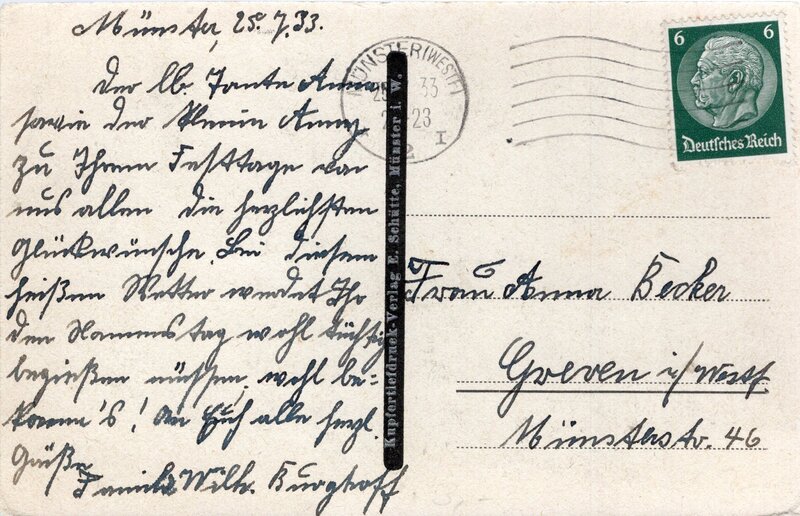 Münster, 25.7.33.
Der lb. Tante Anna
sowie der kleinen Anny
zu Ihrem Festtage von
uns allen die herzlichsten
Glückwünsche. Bei diesem
heißen Wetter werdet Ihr
den Namenstag wohl tüchtig
begießen müssen, wohl be-
komm's! An Euch alle herzl.
Grüße
Familie Wilh. Burghoff
Kupfertiefdruck-Verlag E. Schütte, Münster i. W.
MÜNSTER (WESTF)
33
23
2 I
6 6
Deutsches Reich
Frau Anna Becker
Greven i/Westf
Münsterstr. 46